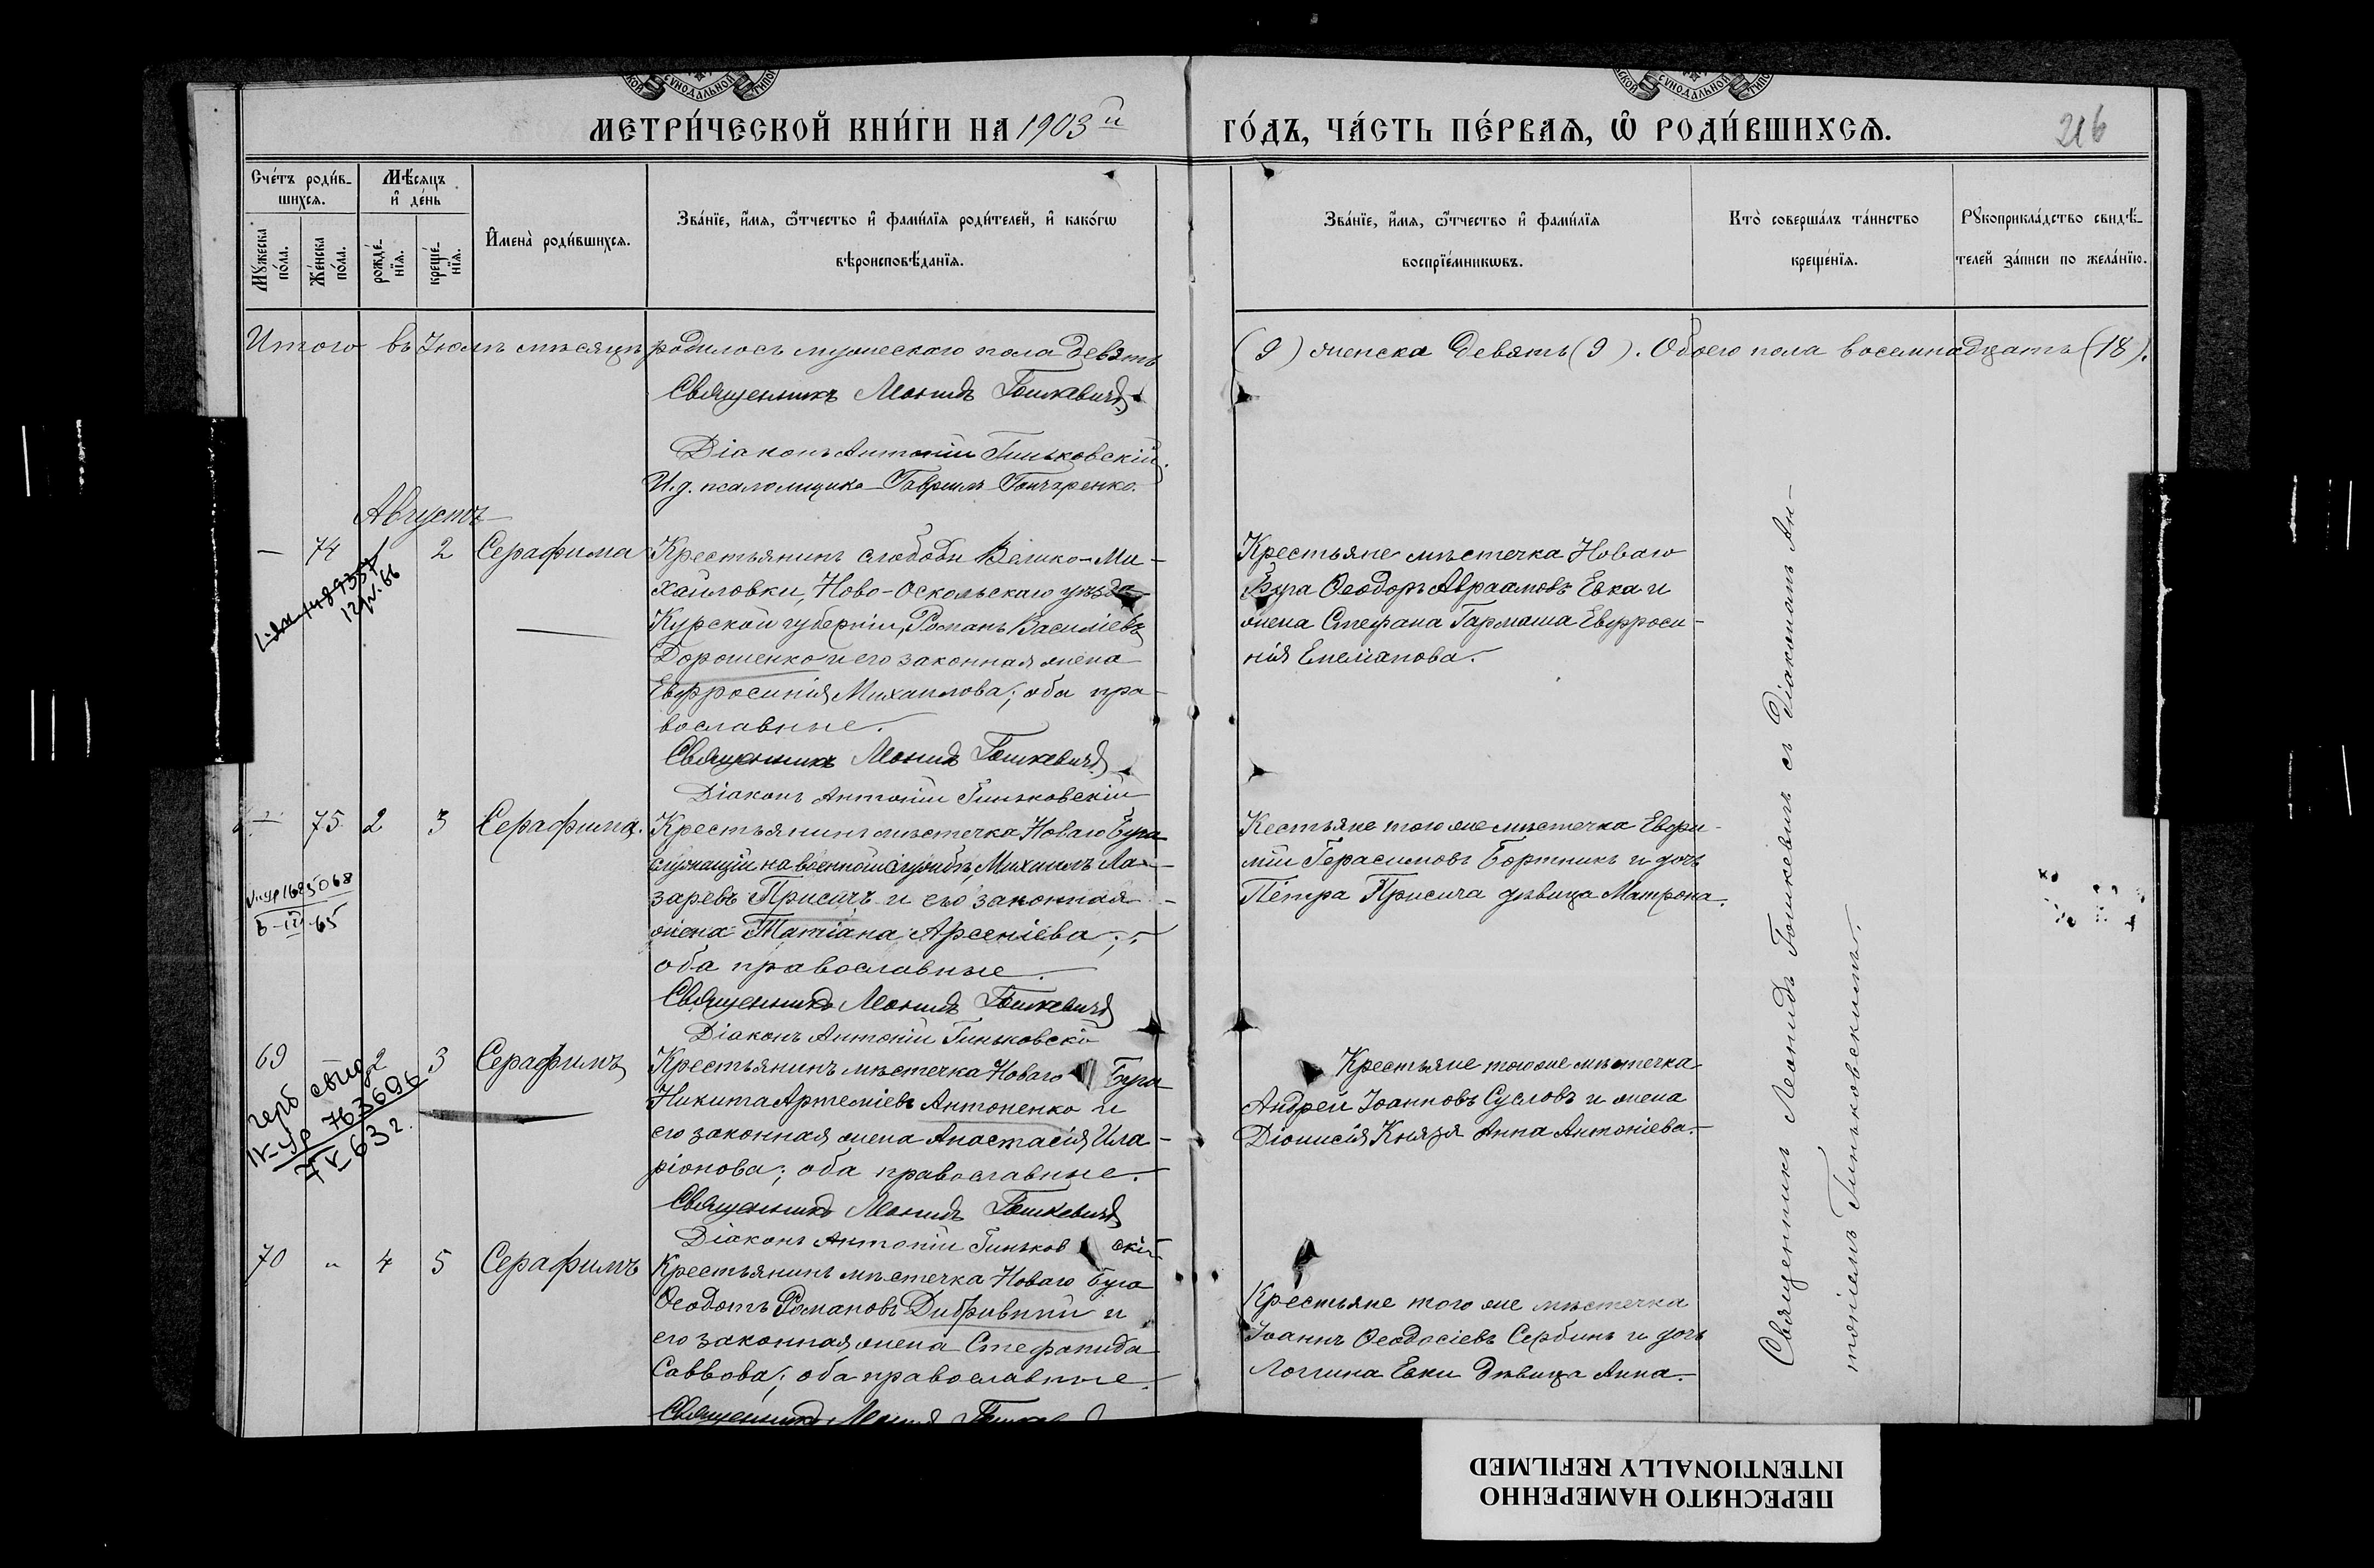 СУНОДАЛЬНОЙ
СУНОДАЛЬНОЙ
МЕТРИ́ЧЕСКОЙ КНИ́ГИ НА 1903й
ГО́ДЪ, ЧА́СТЬ ПЕ́РВАѦ, Ѿ РОДИ́ВШИХСѦ.
216
Сче́тъ роди́в-
шихсѧ.
Мѣ́сѧцъ
и҆ де́нь
Мꙋ́жеска
по́ла.
Же́нска
по́ла.
рожде́-
нїѧ.
креще́-
нїѧ.
И҆мена̀ роди́вшихсѧ.
Зва́нїе, и҆́мѧ, ѻ҆́тчество и҆ фами́лїѧ роди́телей, и҆ како́гѡ
вѣроисповѣ́данїѧ.
Зва́нїе, и҆́мѧ, ѻ҆́тчество и҆ фами́лїѧ
воспрїе́мникѡвъ.
Кто̀ соверша́лъ та́инство
креще́нїѧ.
Рꙋкоприкла́дство свидѣ́-
телей за́писи по жела́нїю.
Итого въ Іюлѣ мѣсяцѣ родилось мужескаго пола девять
(9) женска девять (9). Обоего пола восемнадцать (18).
Священникъ Леонидъ Гошкевичъ
Діаконъ Антоній Гиньковскій.
И.д. псаломщика Гавріилъ Гончаренко.
Августъ
— 74 1 2 Серафима
Крестьянинъ слободы Велико-Ми-
хайловки, Ново-Оскольскаго уѣзда
Курской губерніи, Романъ Василіевъ
Дорошенко и его законная жена
Евфросинія Михаилова; оба пра-
вославные.
Священникъ Леонидъ Гошкевичъ
Діаконъ Антоній Гиньковскій
Крестьяне мѣстечка Новаго
Буга Ѳеодоръ Авраамовъ Евка и
жена Стефана Гармаша Евфроси-
нія Емеліанова.
12 IV. 66
— 75 2 3 Серафима.
Крестьянинъ мѣстечка Новаго Буга
служащій на военной службѣ, Михаилъ Ла-
заревъ Присичъ и его законная
жена Татіана Арсеніева;
оба православные.
Священникъ Леонидъ Гошкевичъ
Діаконъ Антоній Гиньковскій
Кестьяне того же мѣстечка Евфи-
мій Герасимовъ Бортникъ и дочь
Петра Присича дѣвица Матрона.
1685068
5-III-65
69 2 3 Серафимъ
Крестьянинъ мѣстечка Новаго Буга
Никита Артеміевъ Антоненко и
его законная жена Анастасія Ила-
ріонова; оба православные.
Священникъ Леонидъ Гошкевичъ
Діаконъ Антоній Гиньковскій
Крестьяне того же мѣстечка
Андрей Іоанновъ Сусловъ и жена
Діонисія Князя Анна Антоніева.
763696
7 V-63 г.
70 „ 4 5 Серафимъ
Крестьянинъ мѣстечка Новаго Буга
Ѳеодотъ Романовъ Дибривный и
его законная жена Стефанида
Саввова; оба православные.
Священникъ Леонидъ Гошкевичъ
Крестьяне того же мѣстечка
Іоаннъ Ѳеодосіевъ Сербинъ и дочь
Логгина Евки дѣвица Анна.
Священникъ Леонидъ Гошкевичъ съ Діакономъ Ан-
тоніемъ Гиньковскимъ.
ПЕРЕСНЯТО НАМЕРЕННО
INTENTIONALLY REFILMED